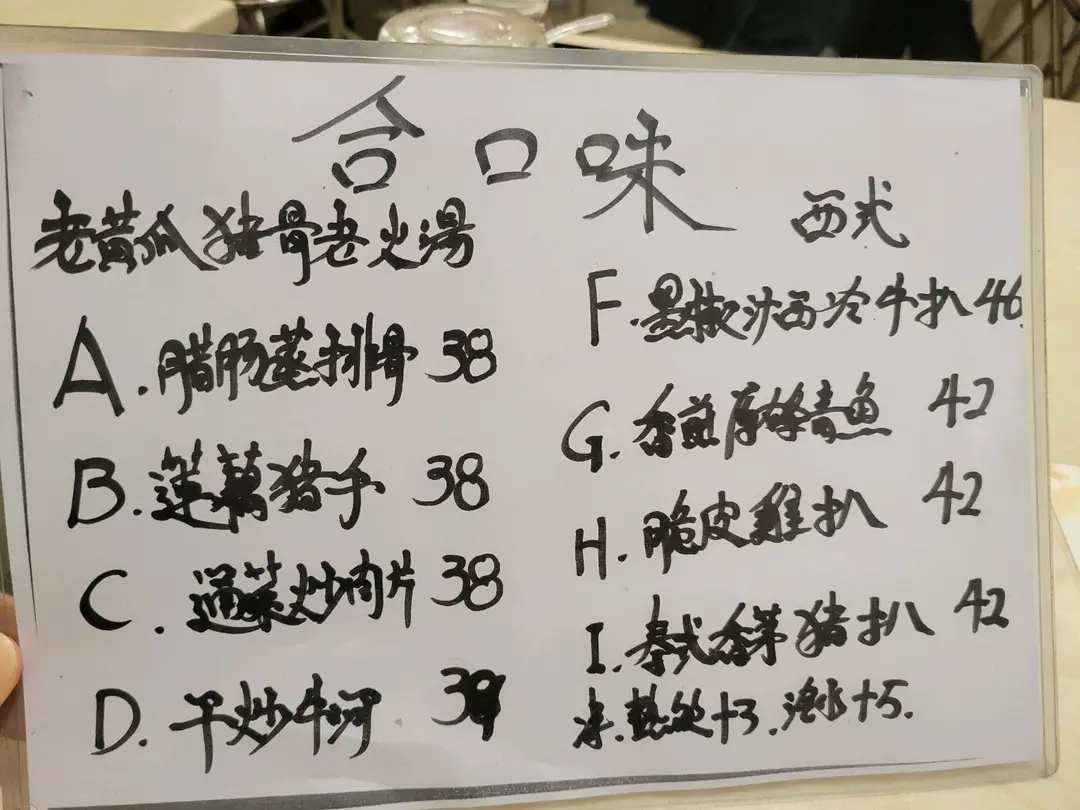 合口味
老黄瓜猪骨老火湯
A.腊肠蒸排骨 38
B.莲藕猪手 38
C.通菜炒肉片 38
D.干炒牛河
西式
F.黑椒沙西冷牛扒 46
G.香煎厚 青鱼 42
H.脆皮雞扒 42
I.泰式香茅猪扒 42
热飲+3.凍+5.